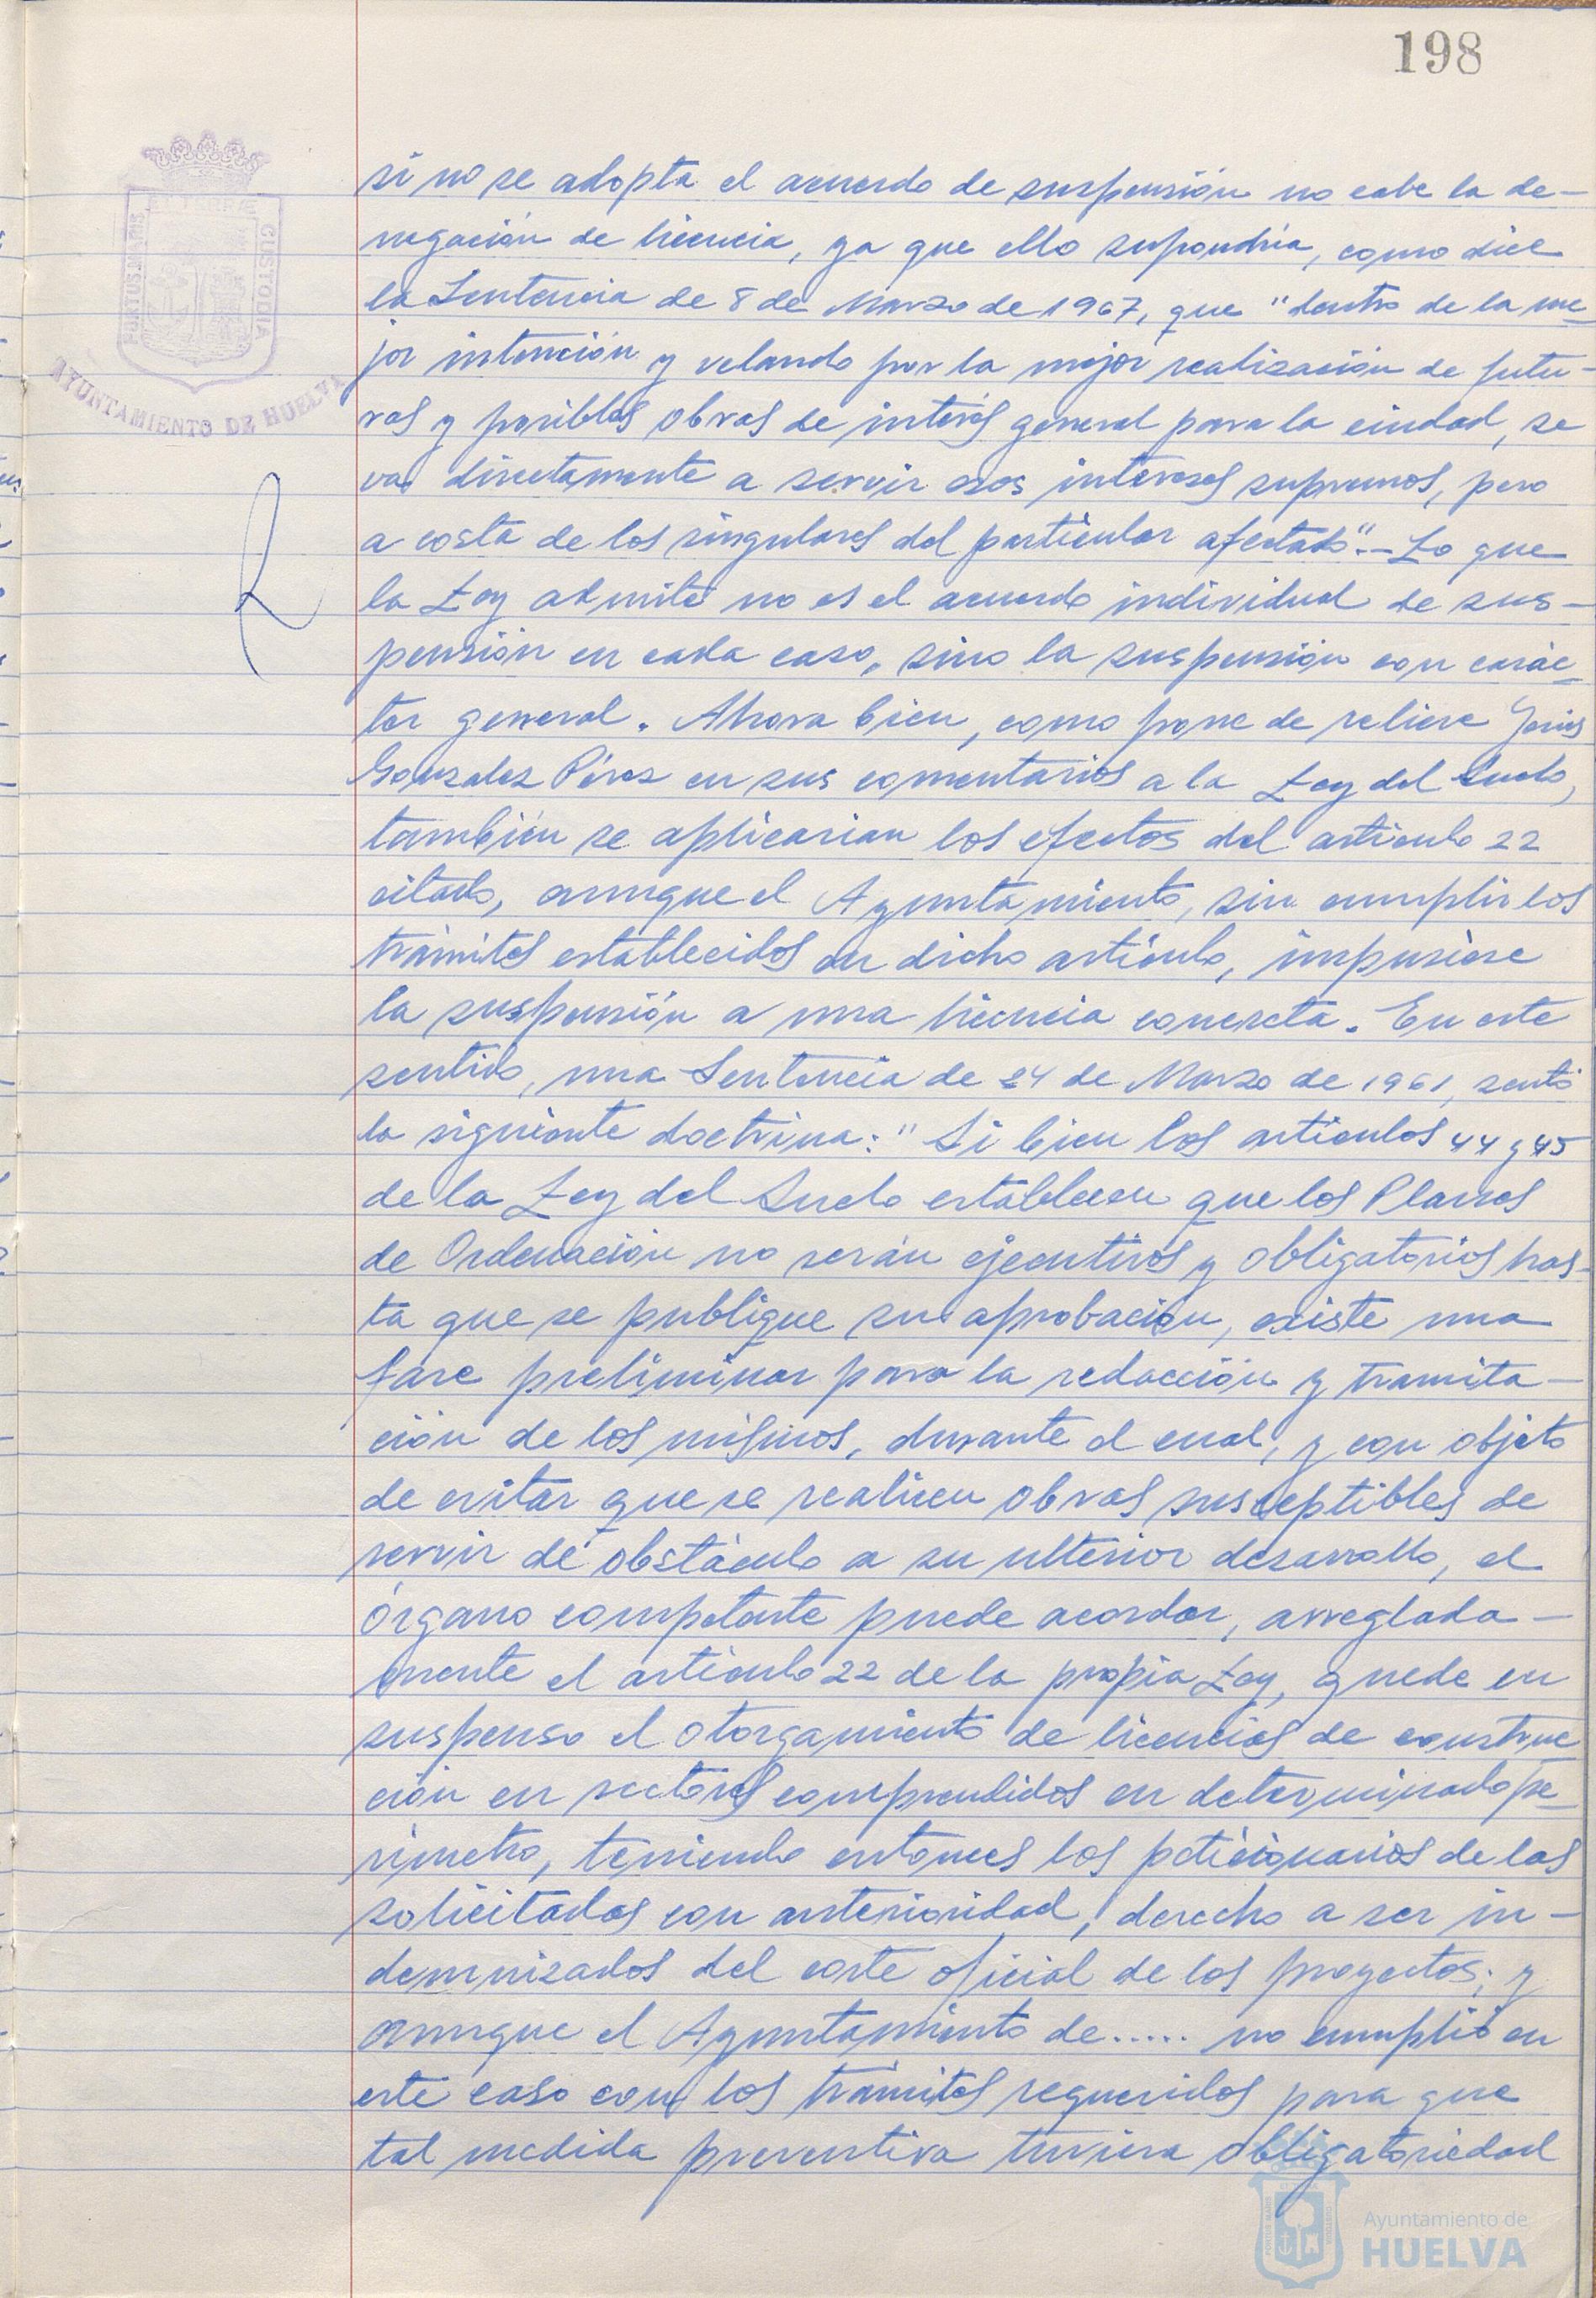 198
PORTUS MARIS
CUSTODIA
AYUNTAMIENTO DE HUELVA
si no se adopta el acuerdo de suspensión no cabe la de-
negación de licencia, ya que ello supondría, como dice
la Sentencia de 8 de Marzo de 1967, que "dentro de la me-
jor intención y velando por la mejor realización de futu-
ras y posibles obras de interés general para la ciudad, se
va directamente a servir esos intereses supremos, pero
a costa de los singulares del particular afectado".- Lo que
la Ley admite no es el acuerdo individual de sus-
pensión en cada caso, sino la suspensión con carác-
ter general. Ahora bien, como pone de relieve
Gonzalez Pérez en sus comentarios a la Ley del Suelo,
también se aplicarian los efectos del artículo 22
citado, aunque el Ayuntamiento, sin cumplir los
trámites establecidos en dicho artículo, impusiese
la suspensión a una licencia concreta. En este
sentido, una Sentencia de 24 de Marzo de 1961, sentó
la siguiente doctrina: "Si bien los articulos 44 y 45
de la Ley del Suelo establecen que los Planes
de Ordenación no serán ejecutivos y obligatorios has-
ta que se publique su aprobación, existe una
fase preliminar para la redacción y tramita-
ción de los mismos, durante el cual, y con objeto
de evitar que se realicen obras susceptibles de
servir de obstáculo a su ulterior desarrollo, el
órgano competente puede acordar, arreglada-
mente el artículo 22 de la propia Ley, quede en
suspenso el otorgamiento de licencias de construc-
ción en sectores comprendidos en determinado pe-
rímetro, teniendo entonces los peticionarios de las
solicitadas con anterioridad, derecho a ser in-
demnizados del coste oficial de los proyectos; y
aunque el Ayuntamiento de..... no cumplió en
este caso con los trámites requeridos para que
tal medida preventiva tuviera obligatoriedad
Ayuntamiento de
HUELVA